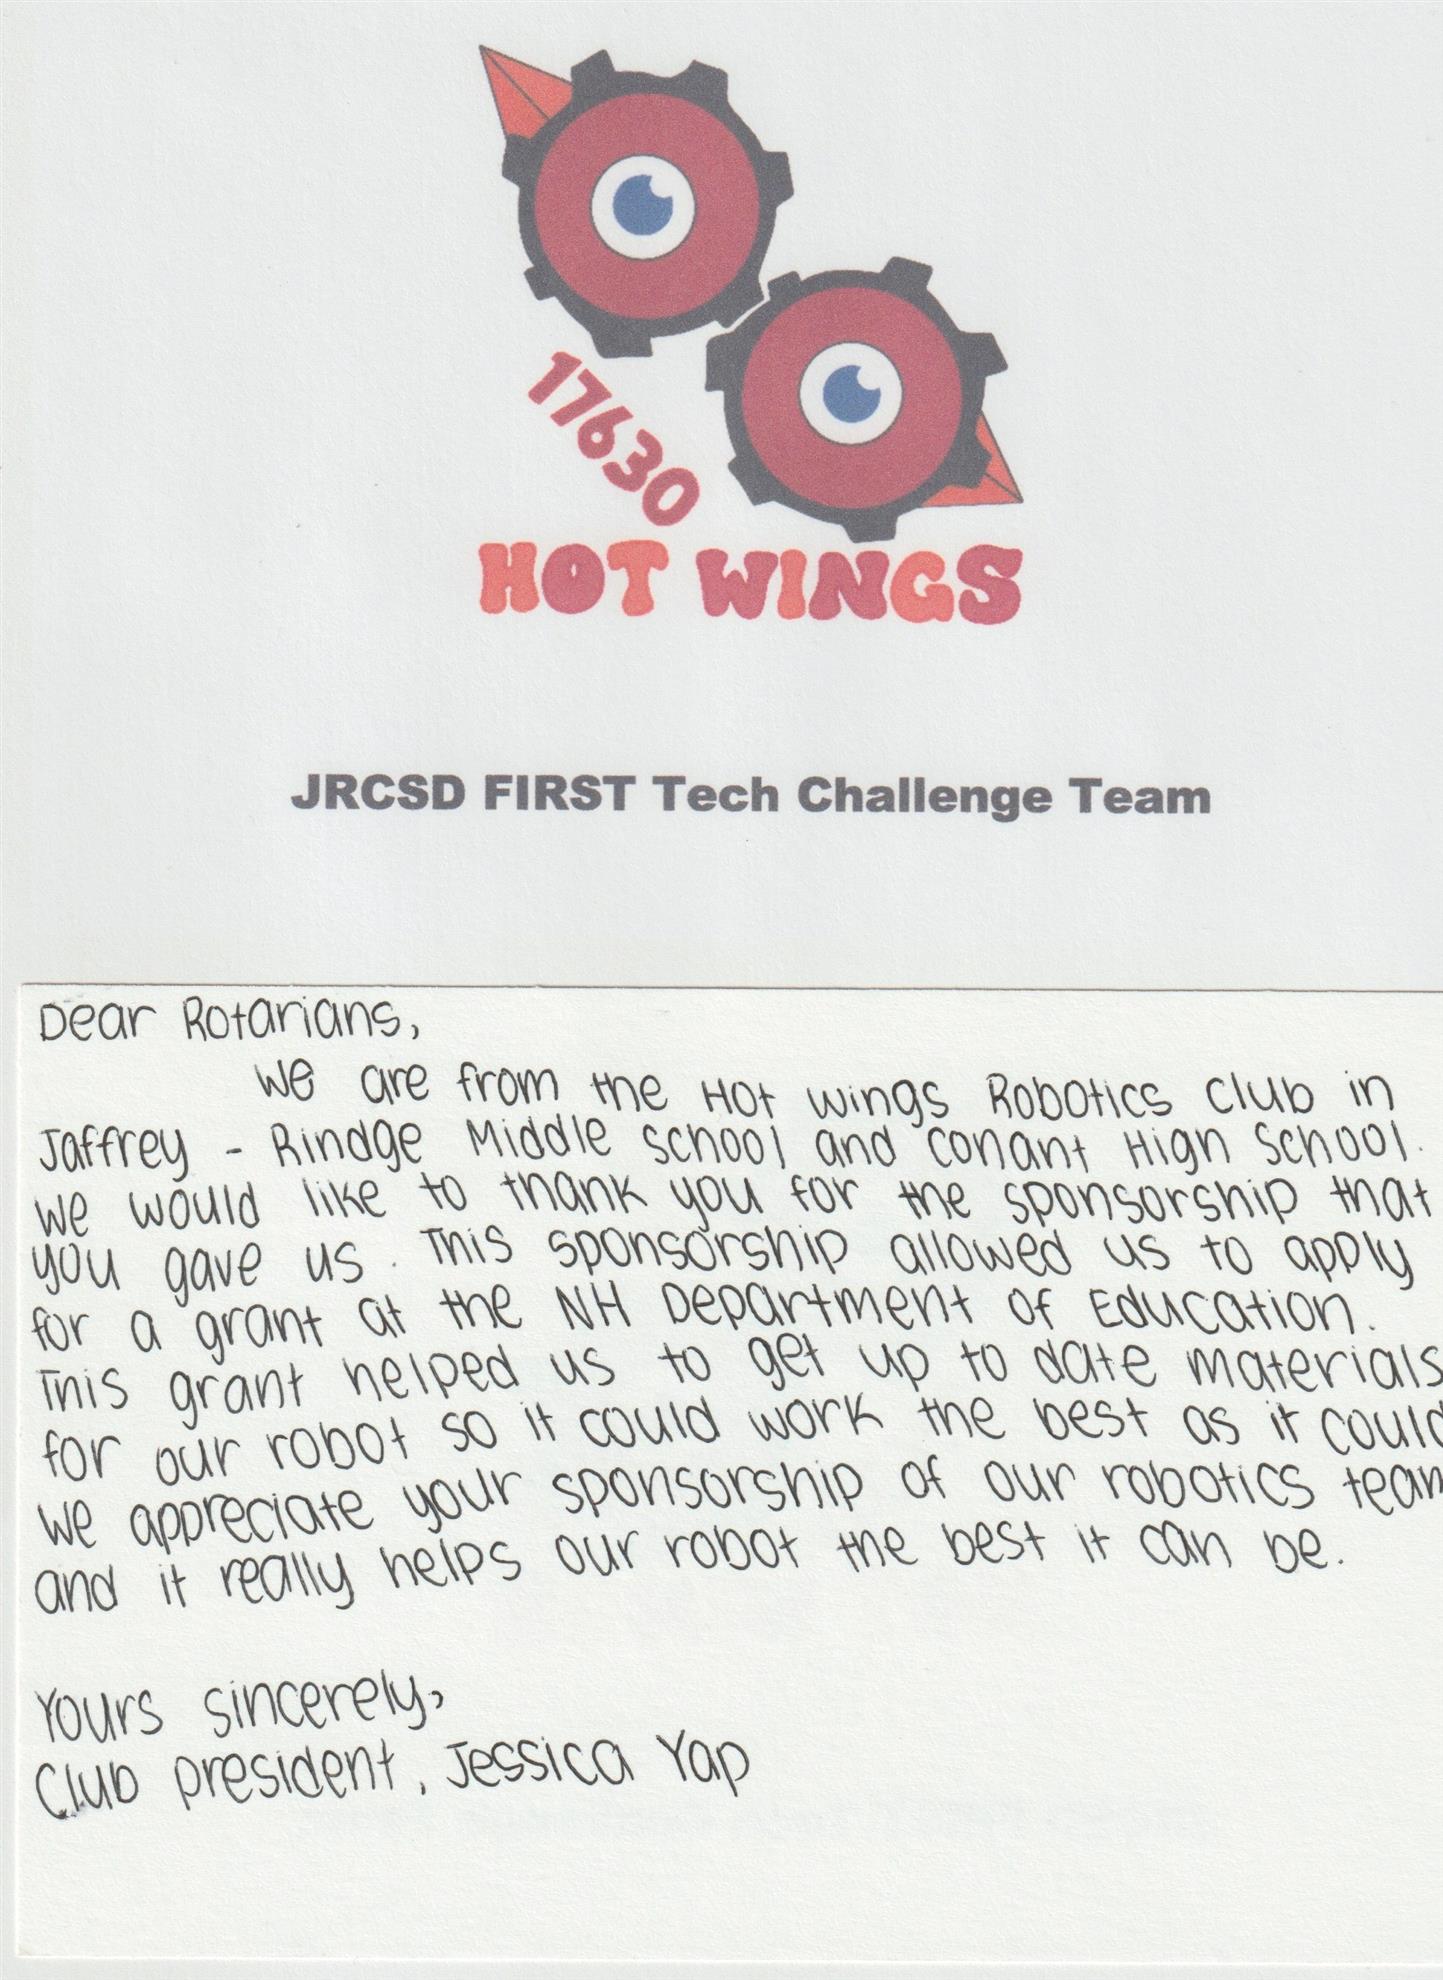 17630
HOT WINGS
JRCSD FIRST Tech Challenge Team
Dear Rotarians,
We are from the Hot Wings Robotics Club in
Jaffrey - Rindge Middle School and Conant High School.
We would like to thank you for the sponsorship that
you gave us. This sponsorship allowed us to apply
for a grant at the NH Department of Education.
This grant helped us to get up to date materials
for our robot so it could work the best as it could
We appreciate your sponsorship of our robotics team
and it really helps our robot the best it can be.
Yours sincerely,
Club president, Jessica Yap